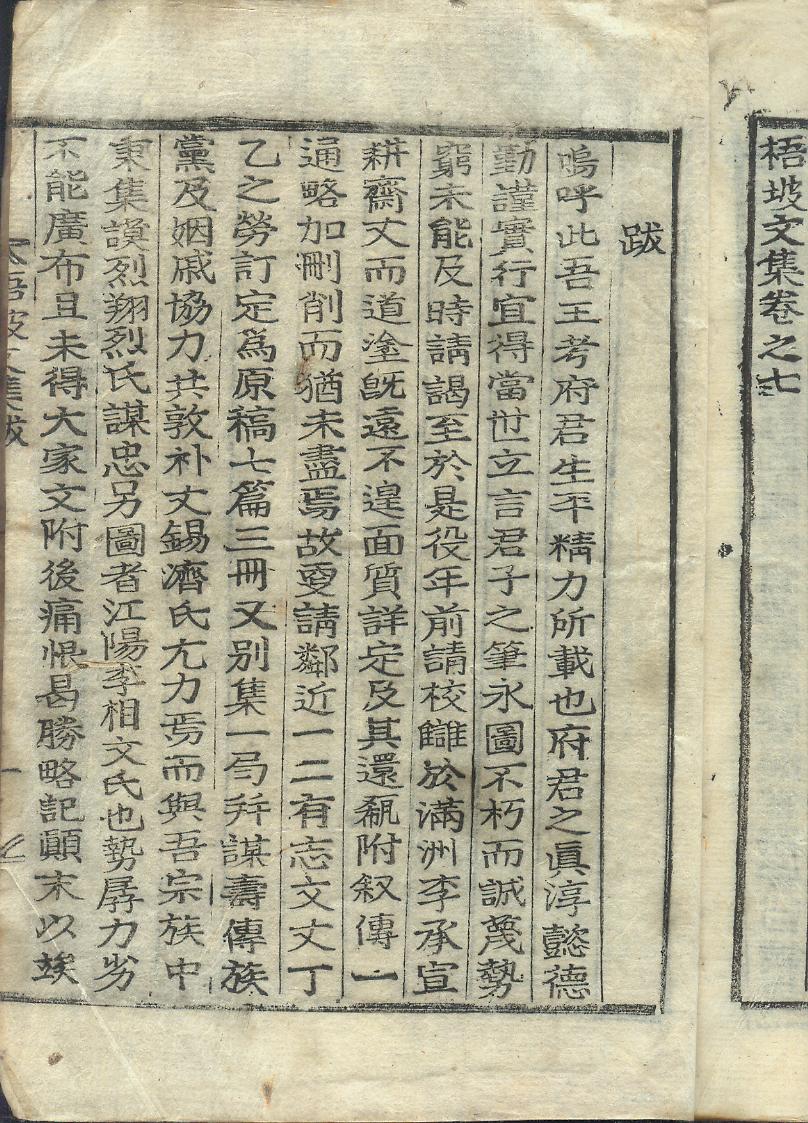 梧坡文集卷之七
跋
嗚呼此吾王考府君生平精力所載也府君之眞淳懿德
勤謹實行宜得當世立言君子之筆永圖不朽而誠蔑勢
窮未能及時請謁至於是役年前請校讎於滿洲李承宣
耕齋丈而道塗旣遠不遑面質詳定及其還瓻附叙傳一
通略加刪削而猶未盡焉故更請鄰近一二有志文丈丁
乙之勞訂定爲原稿七篇三冊又別集一局幷謀壽傳族
黨及姻戚協力共敦补丈錫濟氏尤力焉而與吾宗族中
秉集謨烈翔烈氏謀忠另圖者江陽李相文氏也勢孱力劣
不能廣布且未得大家文附後痛恨曷勝略記顚末以竢